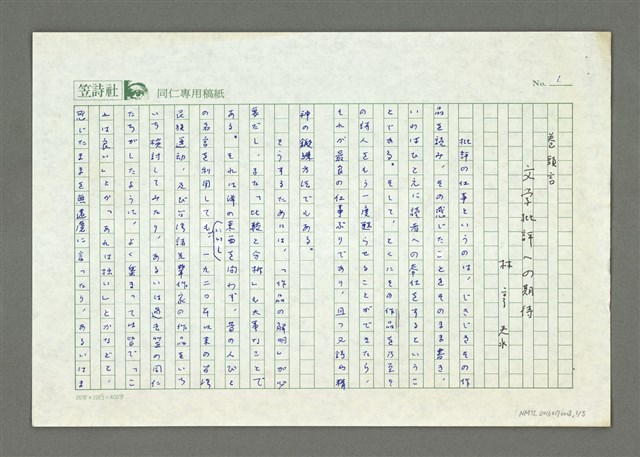 笠詩社 同仁専用稿紙
No. 1
巻頭言
文学批評への期待
林亨泰
批評の仕事というのは、じきじきその作
品を読み、その感じたことをそのまま書き、
いわばひとえに読者への奉仕をするというこ
とである。そして、とくにその作品を乃至
の詩人をもう一度甦らせることができたら、
それが最良の仕事ぶりであり、且つ又詩的精
神の鍛錬方法でもある。
そうするためには、「作品の解明」が必
要だし、また「比較と分析」も大事なことで
ある。それは洋の東西を問わず、昔の人びと
の名言を利用しても(いいし)、一九二〇年以来の台湾
民族運動、及び台湾諸先輩作家の作品をいち
いち検討してみたり、あるいは過去笠の同仁
たちがしたように、よく集まっては皆で「こ
れは良い」とか「あれは拙い」とかなどと、
感じたままを無遠慮に言ったり、あるいはま
20字×20行=400字
NMTL